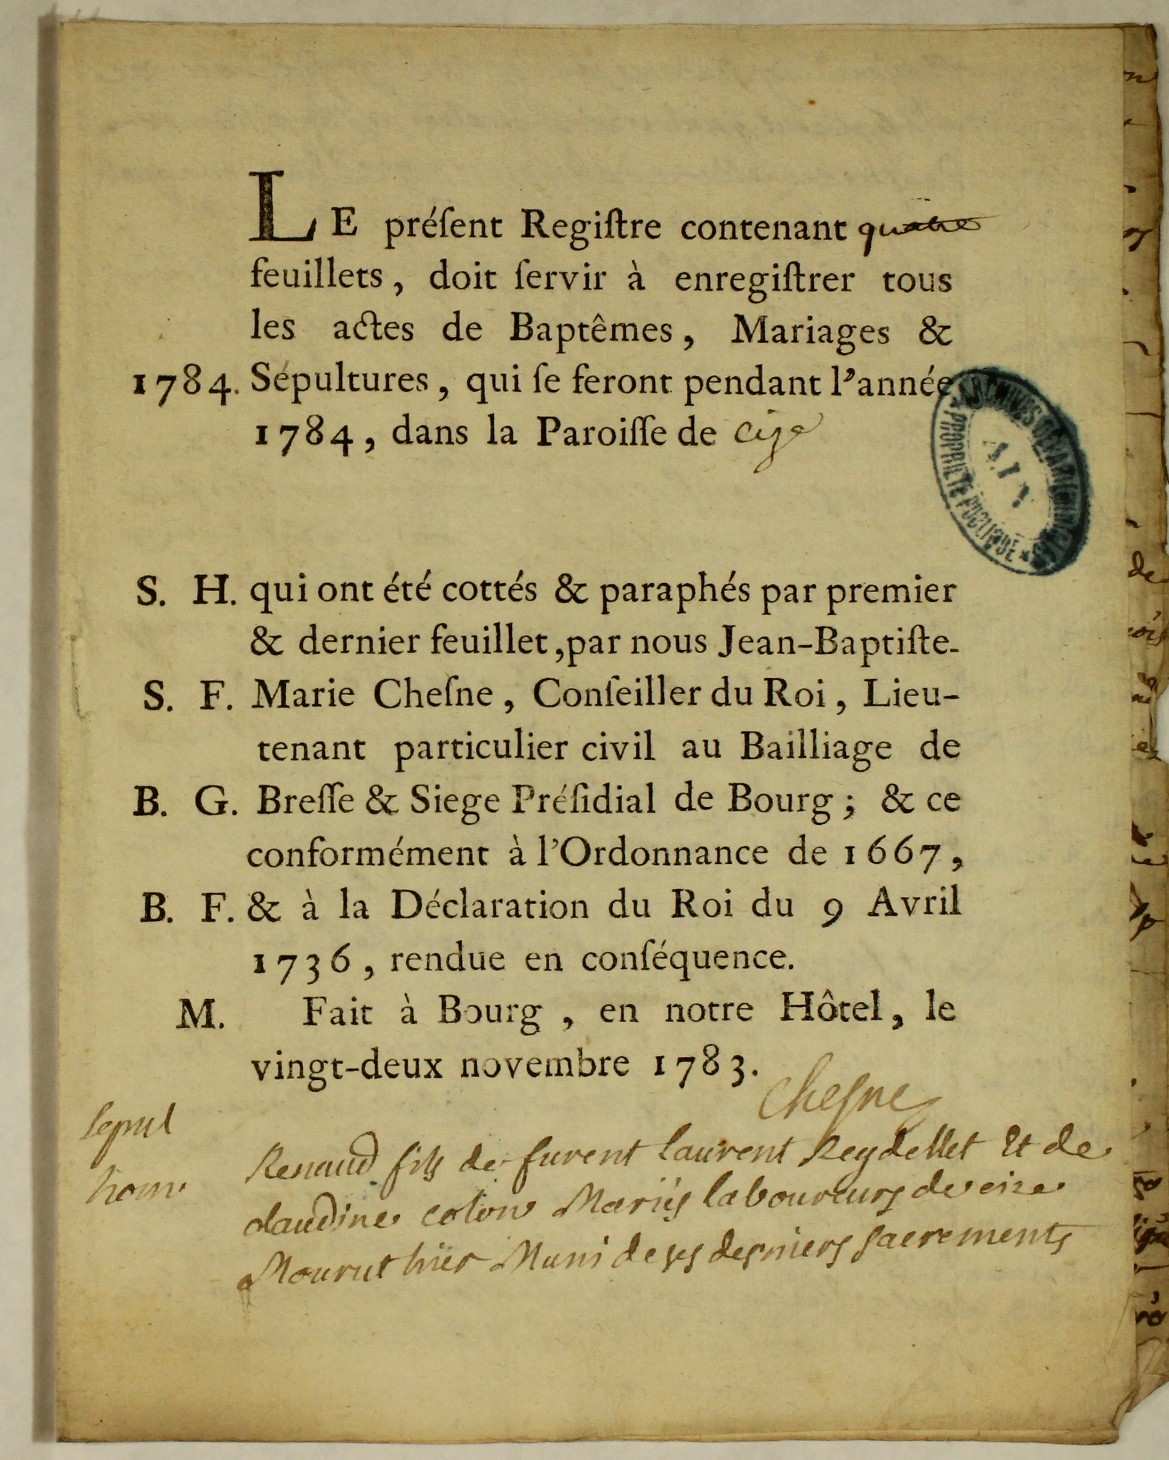 LE préſent Regiſtre contenant quatre
feuillets, doit ſervir à enregiſtrer tous
les actes de Baptêmes, Mariages &
1784. Sépultures, qui ſe feront pendant l'année
1784, dans la Paroiſſe de Cize
ARCHIVES DÉPARTEMENTALES
AIN
PROPRIÉTÉ PUBLIQUE
S. H. qui ont été cottés & paraphés par premier
& dernier feuillet, par nous Jean-Baptiſte-
S. F. Marie Cheſne, Conſeiller du Roi, Lieu-
tenant particulier civil au Bailliage de
B. G. Breſſe & Siege Préſidial de Bourg; & ce
conformément à l'Ordonnance de 1667,
B. F. & à la Déclaration du Roi du 9 Avril
1736, rendue en conſéquence.
M. Fait à Bourg, en notre Hôtel, le
vingt-deux novembre 1783.
Cheſne
sepul
hom.
Renaud fils de furent laurent Reydellet Et de
claudine colon Mariés laboureurs de cize
Mourut hier Muni de ses derniers sacrements